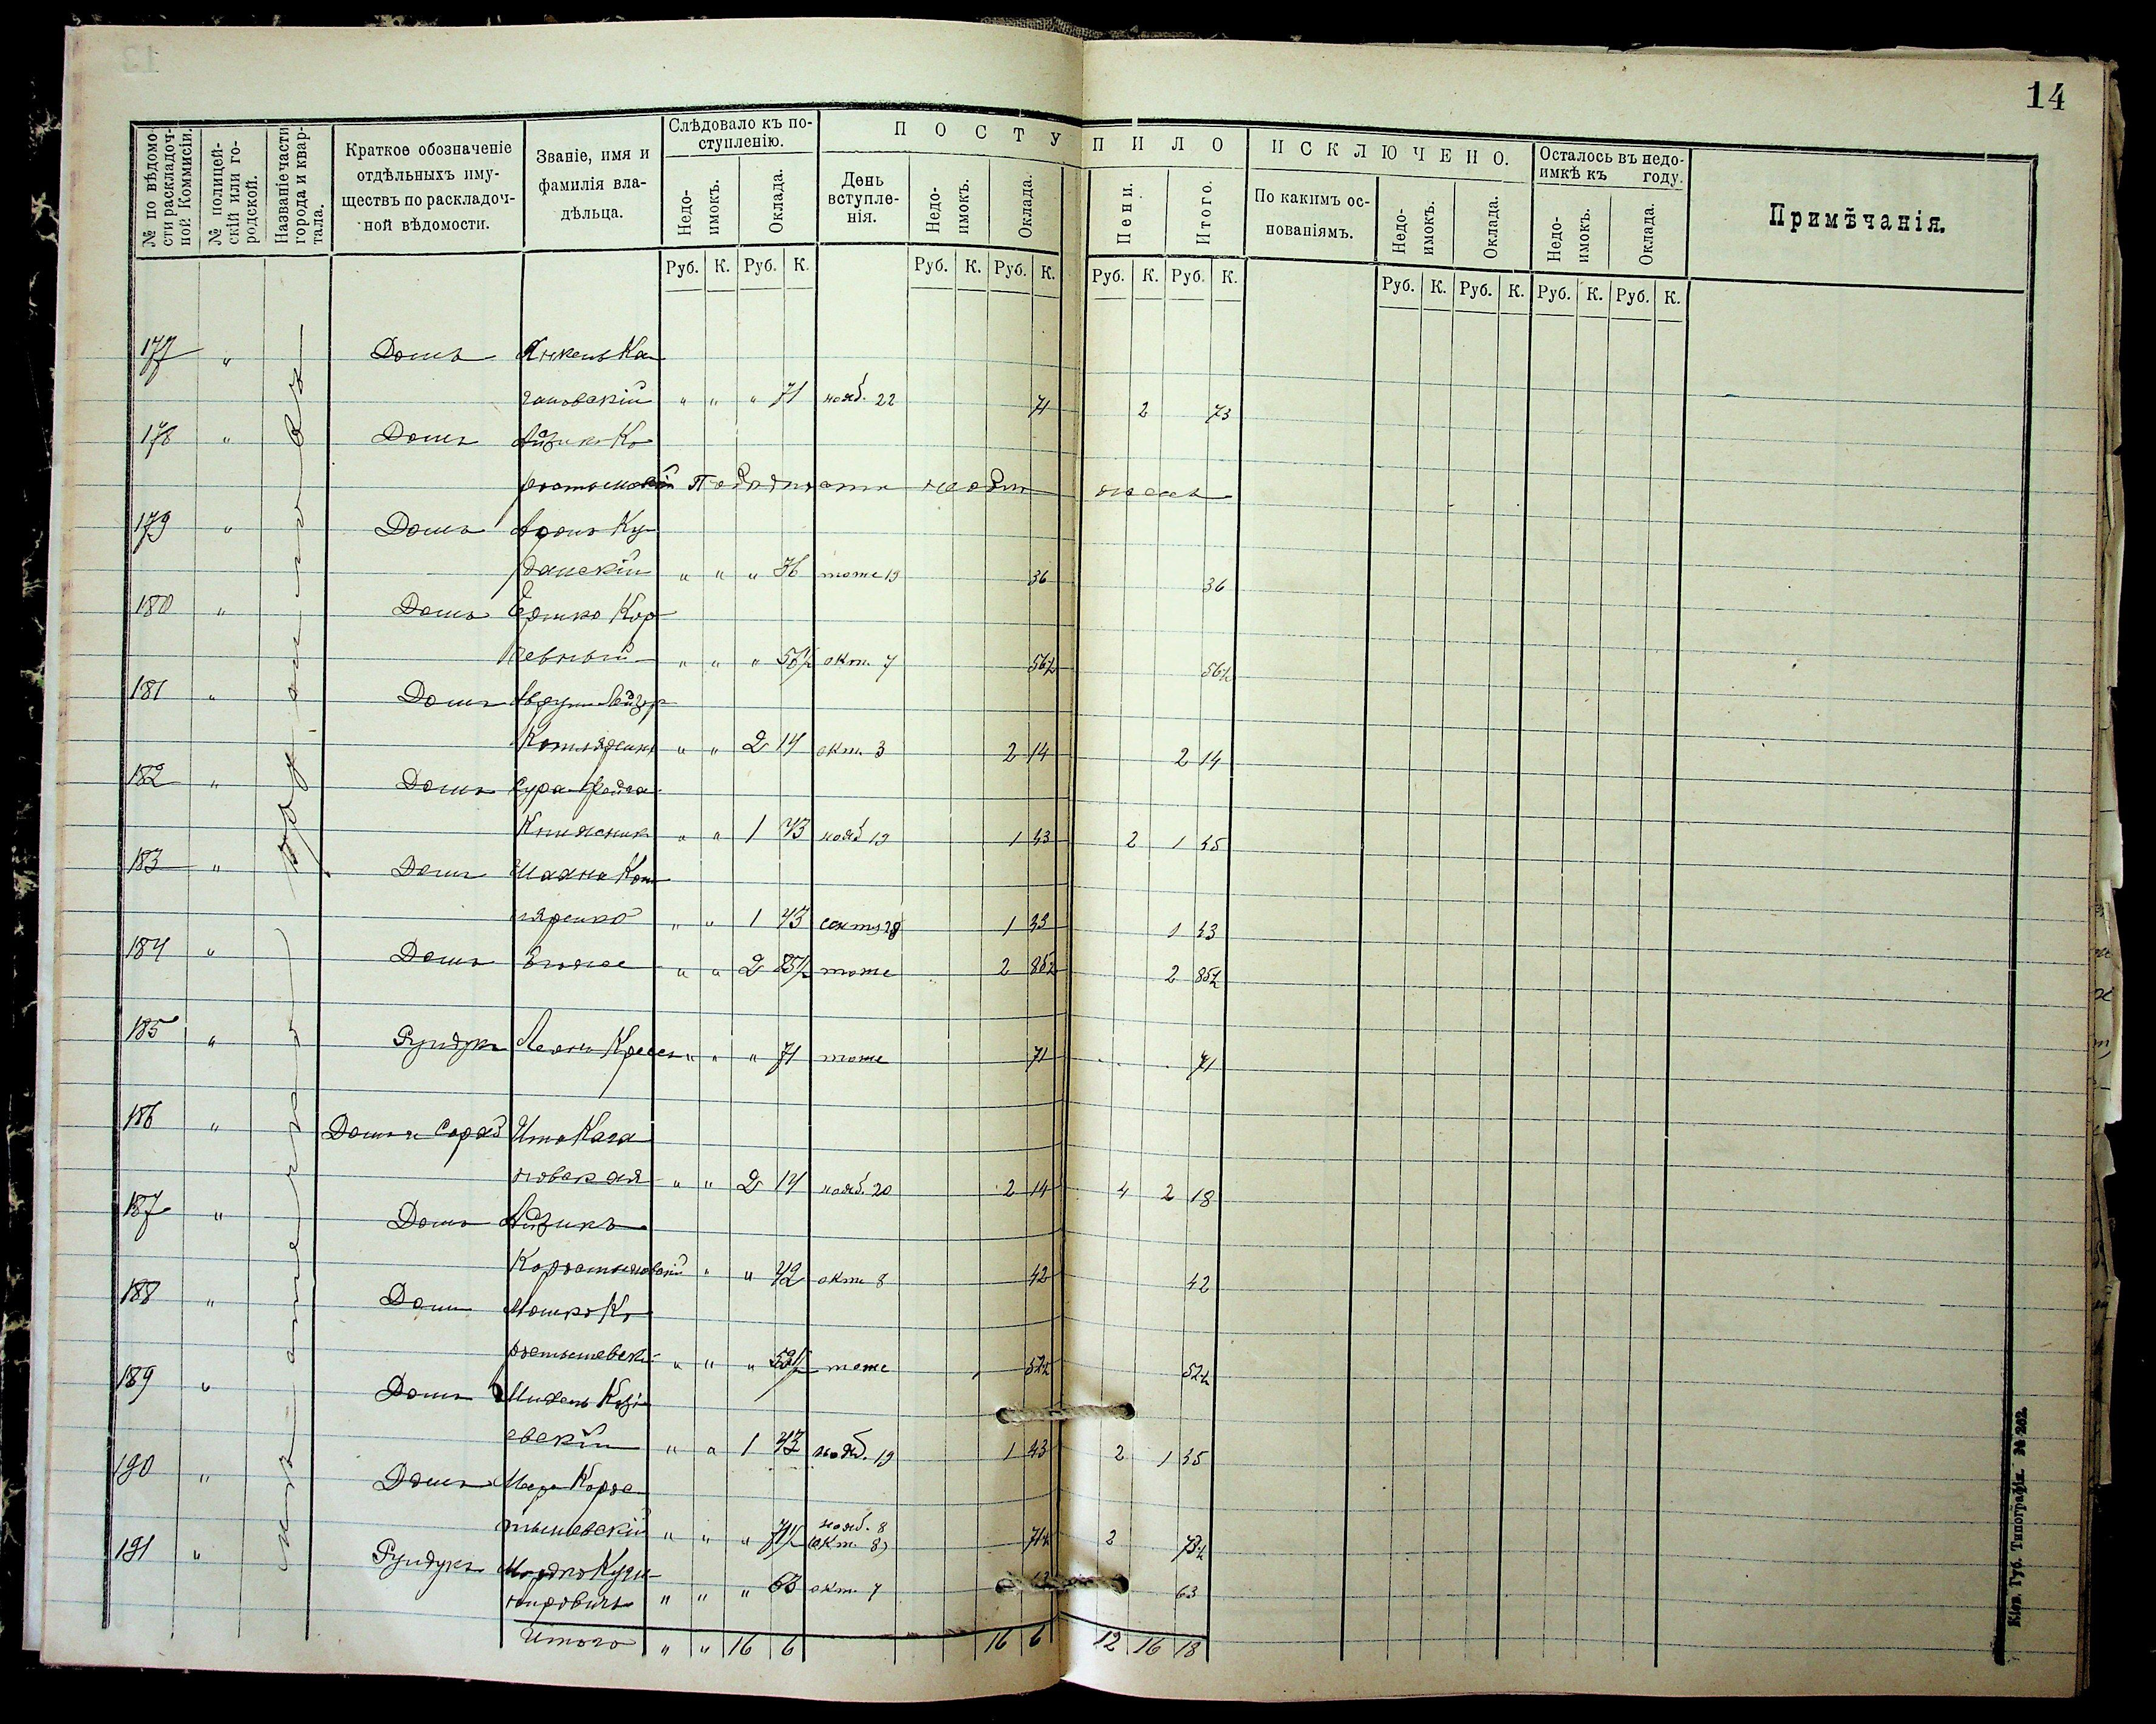 14
№ по вѣдомости раскладочной Коммисіи.
№ полицейскій или городской.
Названіе части города и квартала.
Краткое обозначеніе отдѣльныхъ имуществъ по раскладочной вѣдомости.
Званіе, имя и фамилія владѣльца.
Слѣдовало къ поступленію.
Недоимокъ.
Оклада.
ПОСТУПИЛО
День вступленія.
Недоимокъ.
Оклада.
Пени.
Итого.
ИСКЛЮЧЕНО.
По какимъ основаніямъ.
Недоимокъ.
Оклада.
Осталось въ недоимкѣ къ году.
Недоимокъ.
Оклада.
Примѣчанія.
Руб. К. Руб. К. Руб. К. Руб. К. Руб. К. Руб. К. Руб. К. Руб. К. Руб. К. Руб. К.
177 " Домъ Янкель Ка-
гановскій " " " 71 нояб. 22 71 2 73
178 " Домъ Айзикъ Ко-
179 " Домъ Аронъ Ку-
данскій " " " 36 тоже 19 36 36
180 " Домъ Ершко Кор-
" " " 56½ окт. 7 56½ 56½
181 " Домъ
" " 2 14 окт. 3 2 14 2 14
182 " Домъ Сура Фейга
" " 1 43 нояб. 19 1 43 2 1 45
183 " Домъ Шаяна Кот-
ляренко " " 1 43 сент. 28 1 43 1 43
184 " Домъ " " 2 85½ тоже 2 85½ 2 85½
185 " Рундукъ " " " 71 тоже 71 71
186 " Домъ и сарай Ита Кага-
новская " " 2 14 нояб. 20 2 14 4 2 18
187 " Домъ Айзикъ
Коростышевскій " " 42 окт. 8 42 42
188 " Домъ Мошко Ко-
ростышевскі " " " 52½ тоже 52½ 52½
189 " Домъ Михель Козі-
евскій " " 1 43 нояб. 19 1 43 2 1 45
190 " Домъ Меер Корос-
тышевскій " " " 71½ нояб. 8 (окт. 8) 71½ 2 73½
191 " Рундукъ Мордко Куш-
нировичъ " " " 63 окт. 7 63
Итого " " 16 6 16 6 12 16 18
Кіев. Губ. Типографія. № 202.